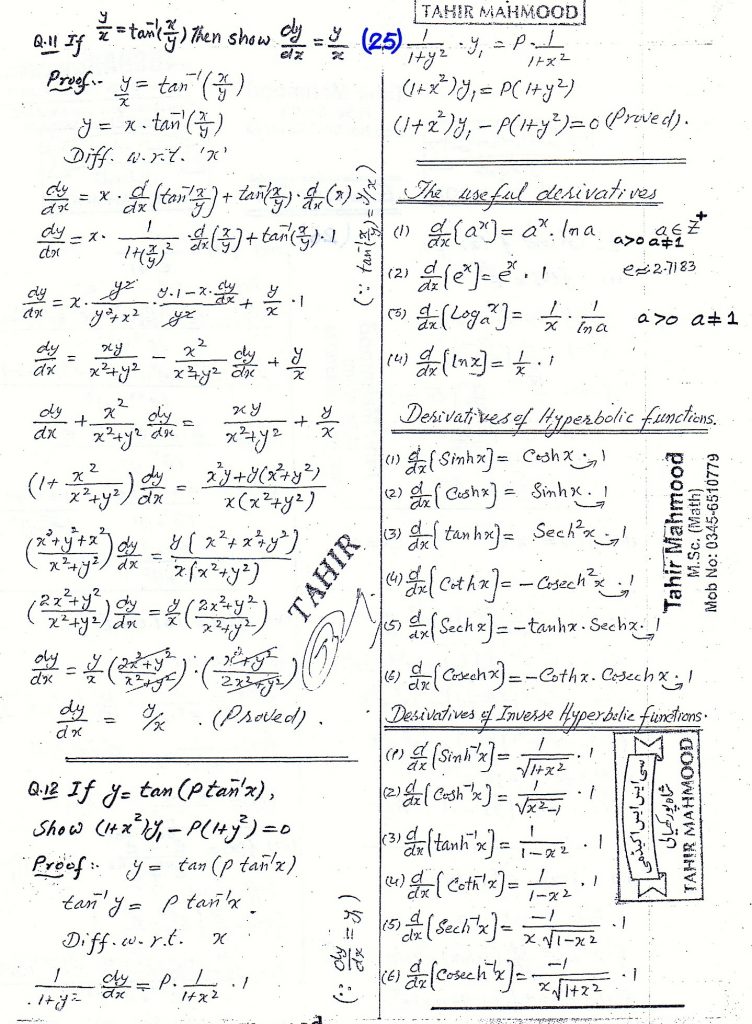 TAHIR MAHMOOD
(25)
Q.11 If y/x = tan⁻¹(x/y) Then show dy/dx = y/x
Proof:- y/x = tan⁻¹(x/y)
y = x · tan⁻¹(x/y)
Diff. w.r.t. 'x'
dy/dx = x · d/dx (tan⁻¹ x/y) + tan⁻¹(x/y) · d/dx (x)
dy/dx = x · 1/(1+(x/y)²) · d/dx(x/y) + tan⁻¹(x/y) · 1
(∵ tan⁻¹(x/y) = y/x)
dy/dx = x · y²/(y²+x²) · (y·1 − x·dy/dx)/y² + y/x · 1
dy/dx = xy/(x²+y²) − x²/(x²+y²) dy/dx + y/x
dy/dx + x²/(x²+y²) dy/dx = xy/(x²+y²) + y/x
(1 + x²/(x²+y²)) dy/dx = (x²y + y(x²+y²))/(x(x²+y²))
((x²+y²+x²)/(x²+y²)) dy/dx = y(x²+x²+y²)/(x(x²+y²))
((2x²+y²)/(x²+y²)) dy/dx = y/x ((2x²+y²)/(x²+y²))
dy/dx = y/x ((2x²+y²)/(x²+y²)) · ((x²+y²)/(2x²+y²))
dy/dx = y/x . (Proved).
TAHIR
Q.12 If y = tan(P tan⁻¹x),
Show (1+x²)y₁ − P(1+y²) = 0
Proof:- y = tan(P tan⁻¹x)
tan⁻¹y = P tan⁻¹x.
Diff. w.r.t. x
1/(1+y²) dy/dx = P · 1/(1+x²) · 1
(∵ dy/dx = y₁)
1/(1+y²) · y₁ = P · 1/(1+x²)
(1+x²)y₁ = P(1+y²)
(1+x²)y₁ − P(1+y²) = 0 (Proved).
The useful derivatives
(1) d/dx [aˣ] = aˣ · ln a a>0 a≠1 a ∈ Z⁺
(2) d/dx [eˣ] = eˣ · 1 e ≈ 2.7183
(3) d/dx [Logₐx] = 1/x · 1/ln a a>0 a≠1
(4) d/dx [ln x] = 1/x · 1
Derivatives of Hyperbolic functions.
(1) d/dx [Sinh x] = Cosh x · 1
(2) d/dx [Cosh x] = Sinh x · 1
(3) d/dx [tanh x] = Sech²x · 1
(4) d/dx [Coth x] = −Cosech²x · 1
(5) d/dx [Sech x] = −tanh x · Sech x · 1
(6) d/dx [Cosech x] = −Coth x · Cosech x · 1
Tahir Mahmood
M.Sc. (Math)
Mob No: 0345-6510779
Derivatives of Inverse Hyperbolic functions.
(1) d/dx [Sinh⁻¹x] = 1/√(1+x²) · 1
(2) d/dx [Cosh⁻¹x] = 1/√(x²−1) · 1
(3) d/dx [tanh⁻¹x] = 1/(1−x²) · 1
(4) d/dx [Coth⁻¹x] = 1/(1−x²) · 1
(5) d/dx [Sech⁻¹x] = −1/(x√(1−x²)) · 1
(6) d/dx [Cosech⁻¹x] = −1/(x√(1+x²)) · 1
سی ایس ایس اکیڈمی
TAHIR MAHMOOD